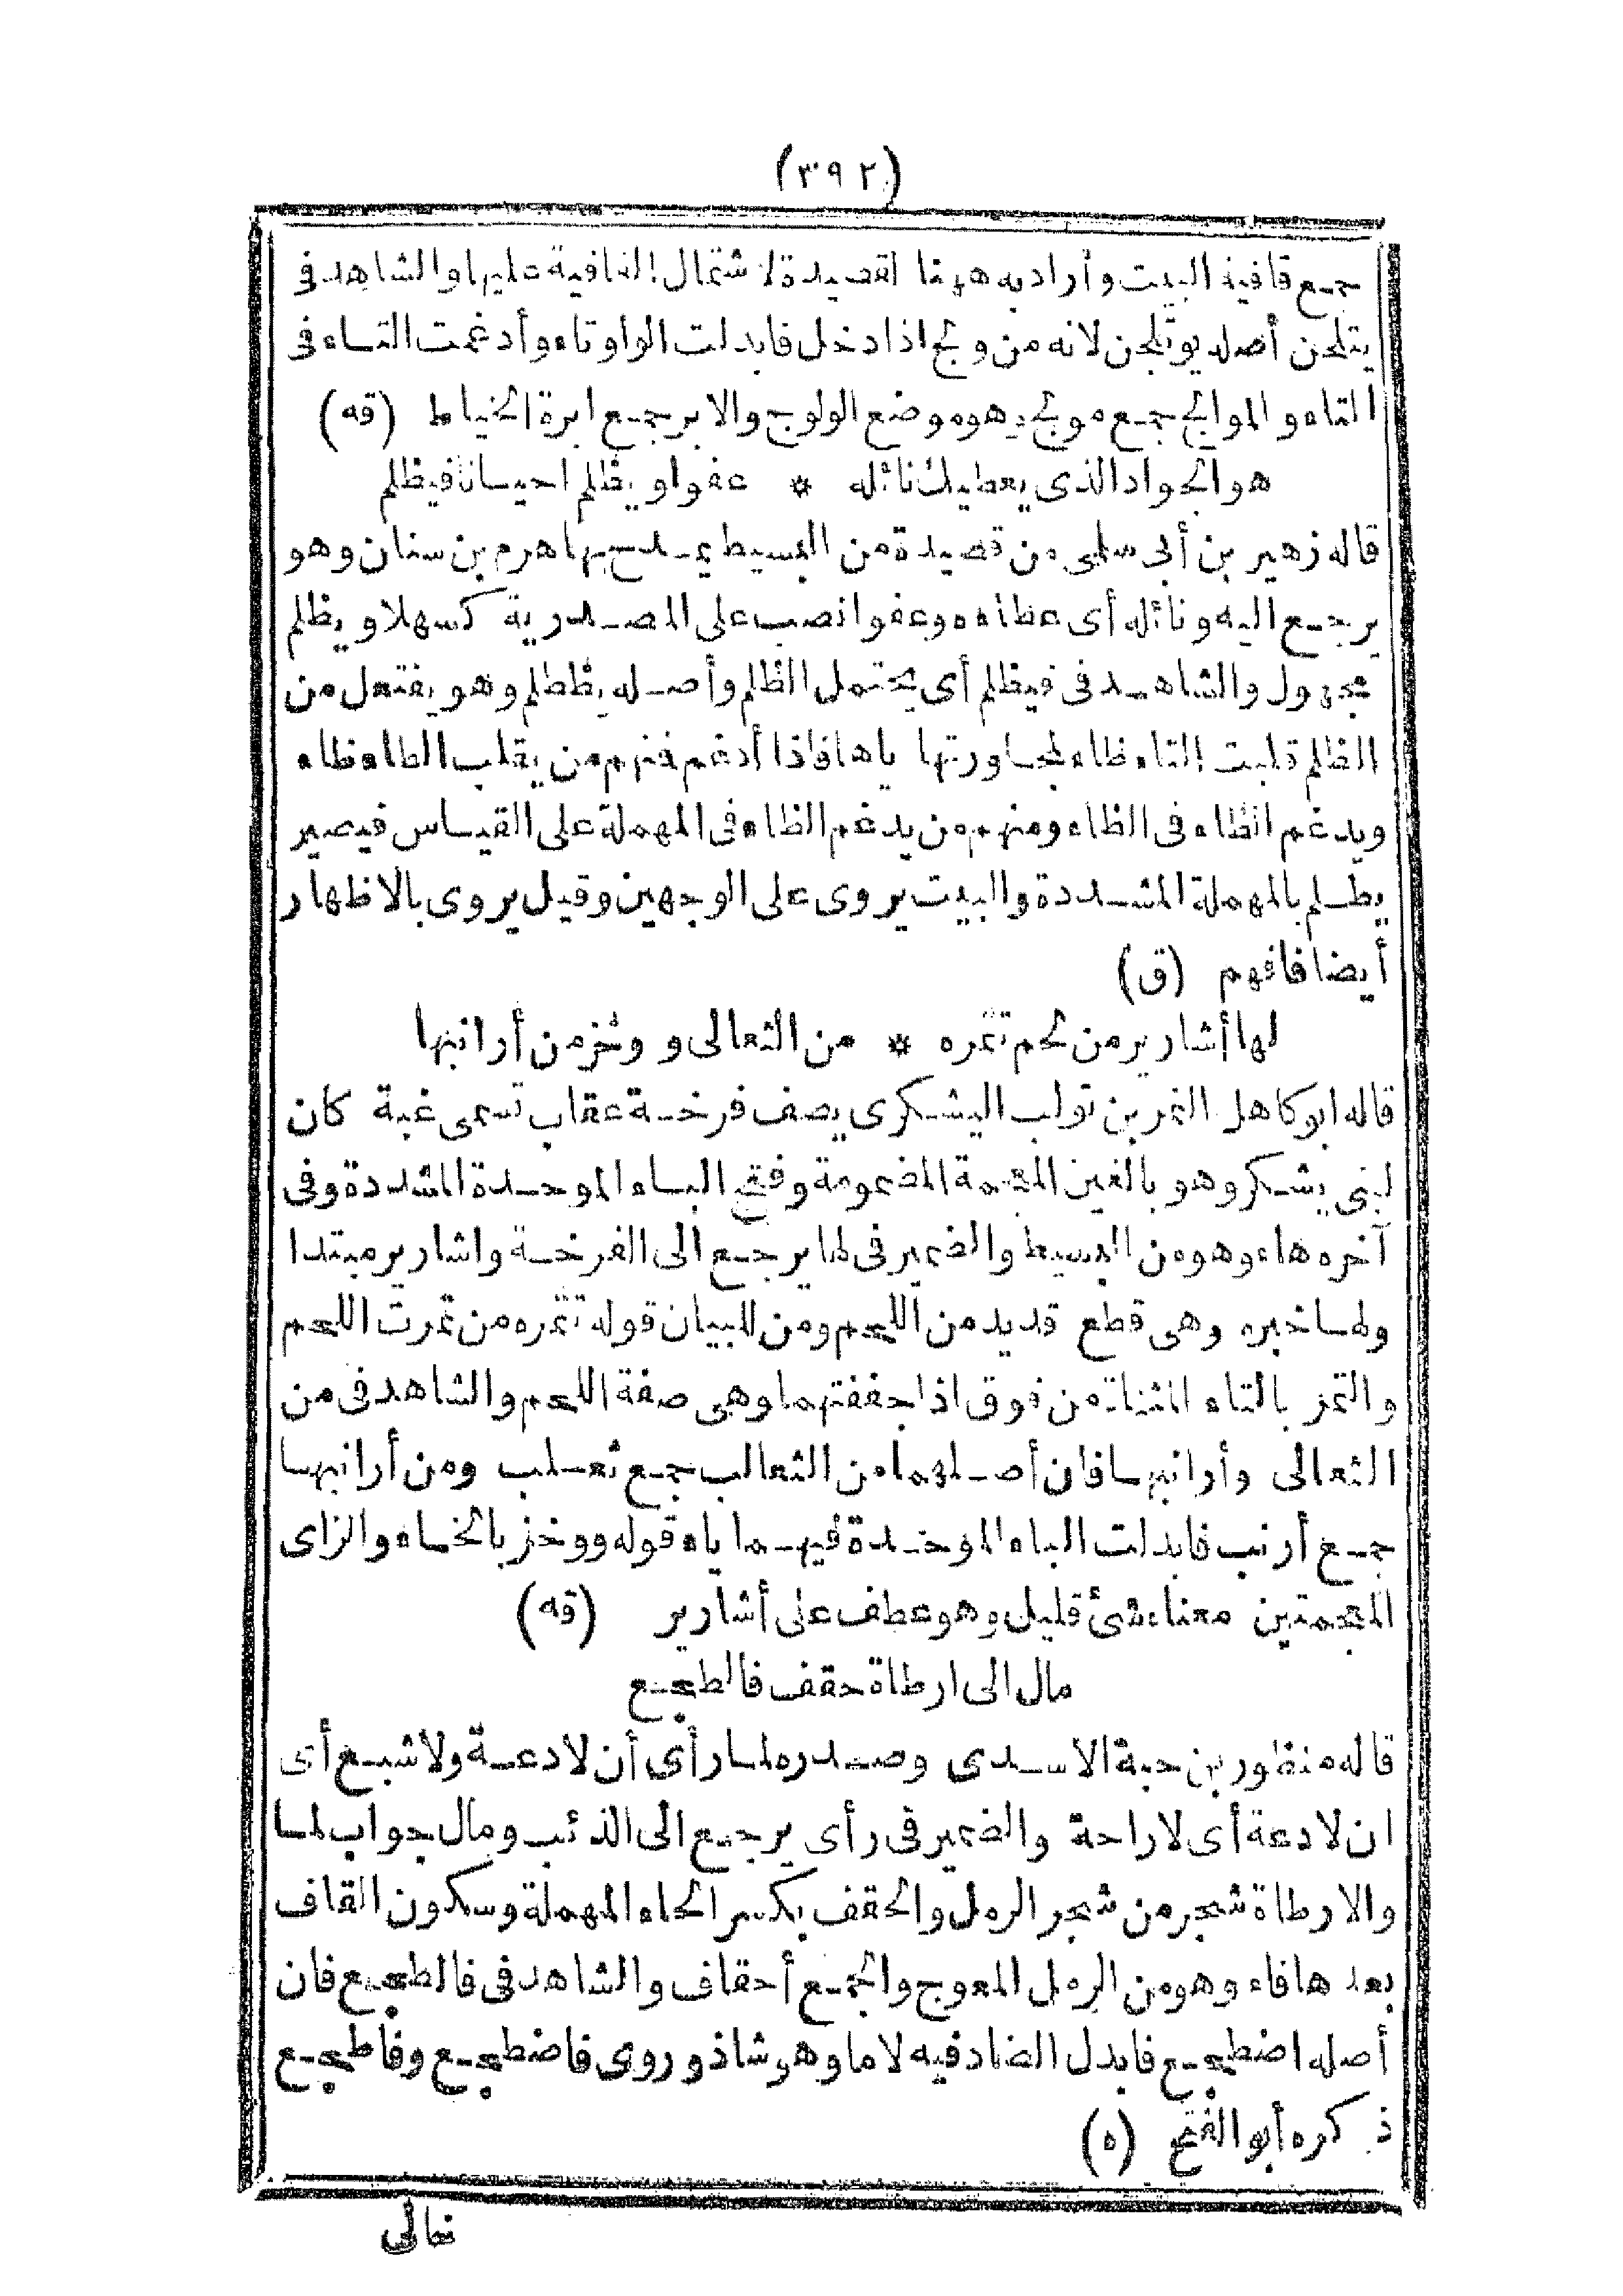 (٣٩٢)
جمع قافية البيت وأراد به ههنا القصيدة لاشتمال القافية عليها والشاهد فى
يتلجن أصله يوتلجن لانه من ولج اذا دخل فابدلت الواو تاء وأدغمت التاء فى
التاء والموالج جمع مولج وهو موضع الولوج والابر جمع ابرة الخياط (قه)
هو الجواد الذى يعطيك نائله * عفوا ويظلم احيانا فيظلم
قاله زهير بن أبى سلمى من قصيدة من البسيط يمدح بها هرم بن سنان وهو
يرجع اليه ونائله أى عطاءه وعفوا نصب على المصدرية كسهلا ويظلم
مجهول والشاهد فى فيظلم أى يحتمل الظلم وأصله يظطلم وهو يفتعل من
الظلم قلبت التاء ظاء لمجاورتها ياها فاذا أدغم فنهم من يقلب الطاء ظاء
ويدغم الظاء فى الظاء ومنهم من يدغم الظاء فى المهملة على القياس فيصير
يطلم بالمهملة المشددة والبيت يروى على الوجهين وقيل يروى بالاظهار
أيضا فافهم (ق)
لها أشارير من لحم تتمره * من الثعالى ووخز من أرانيها
قاله ابو كاهل النمر بن تولب اليشكرى يصف فرخة عقاب تسمى غبة كان
لبنى يشكر وهو بالغين المعجمة المضمومة وفتح الباء الموحدة المشددة وفى
آخره هاء وهو من البسيط والضمير فى لها يرجع الى الفرخة واشارير مبتدا
ولها خبره وهى قطع قديد من اللحم ومن للبيان قوله تتمره من تمرت اللحم
والتمر بالتاء المثناة من فوق اذا جففتهما وهى صفة اللحم والشاهد فى من
الثعالى وأرانيها فان أصلهما من الثعالب جمع ثعلب ومن أرانبها
جمع أرنب فابدلت الباء الموحدة فيهما ياء قوله ووخز بالخاء والزاى
المعجمتين معناه شئ قليل وهو عطف على أشارير (قه)
مال الى ارطاة حقف فالطجع
قاله منظور بن حبة الاسدى وصدره لما رأى أن لا دعة ولا شبع أى
ان لا دعة أى لا راحة والضمير فى رأى يرجع الى الذئب ومال جواب لما
والارطاة شجر من شجر الرمل والحقف بكسر الحاء المهملة وسكون القاف
بعدها فاء وهو من الرمل المعوج والجمع أحقاف والشاهد فى فالطجع فان
أصله اضطجع فابدل الضاد فيه لاما وهو شاذ وروى فاضطجع وفاطجع
ذكره أبو الفتح (ه)
تعالى